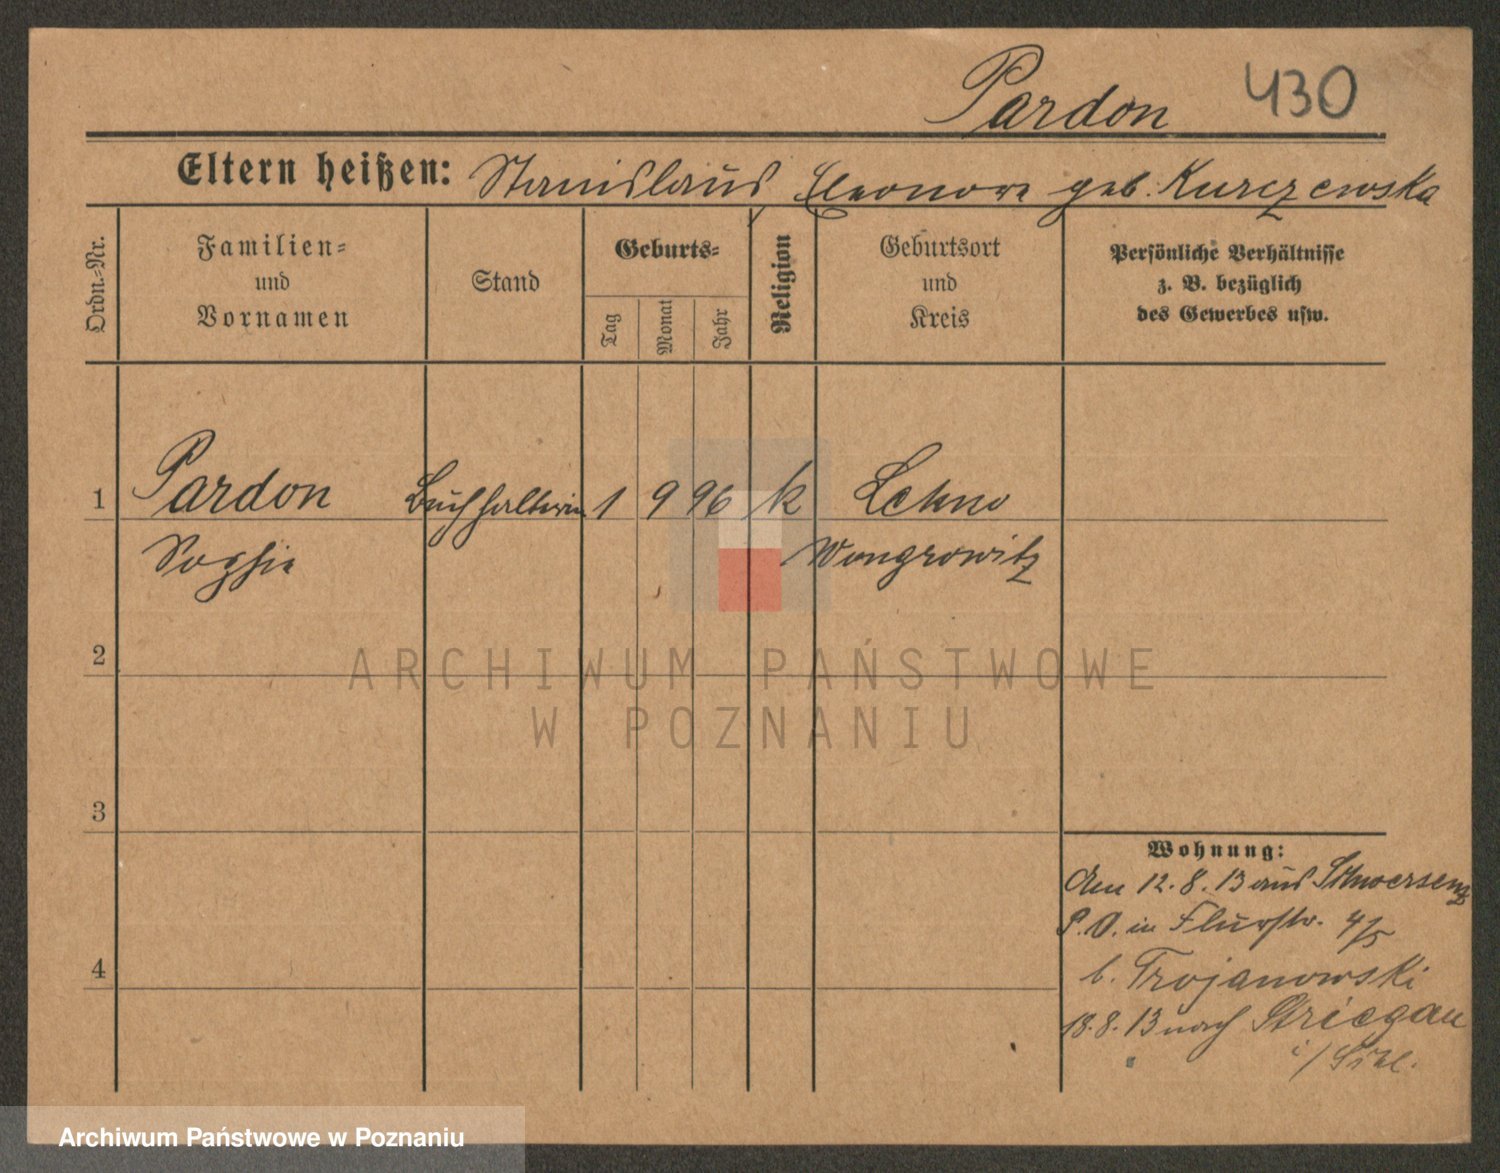 Pardon 430
Eltern heißen: Stanislaus Eleonore geb. Kurczewska
Ordn.-Nr.
Familien-
und
Vornamen
Stand
Geburts-
Tag
Monat
Jahr
Religion
Geburtsort
und
Kreis
Persönliche Verhältnisse
z. B. bezüglich
des Gewerbes usw.
1 Pardon Buchhalterin 1 9 96 k Lekno
Sophie Wongrowitz
2
ARCHIWUM PAŃSTWOWE
W POZNANIU
3
Wohnung:
Den 12.8.13 aus Schwersenz
P. O. in Flurstr. 4/5
b. Trojanowski
4
18.8.13 nach Striegau
i/Schl.
Archiwum Państwowe w Poznaniu